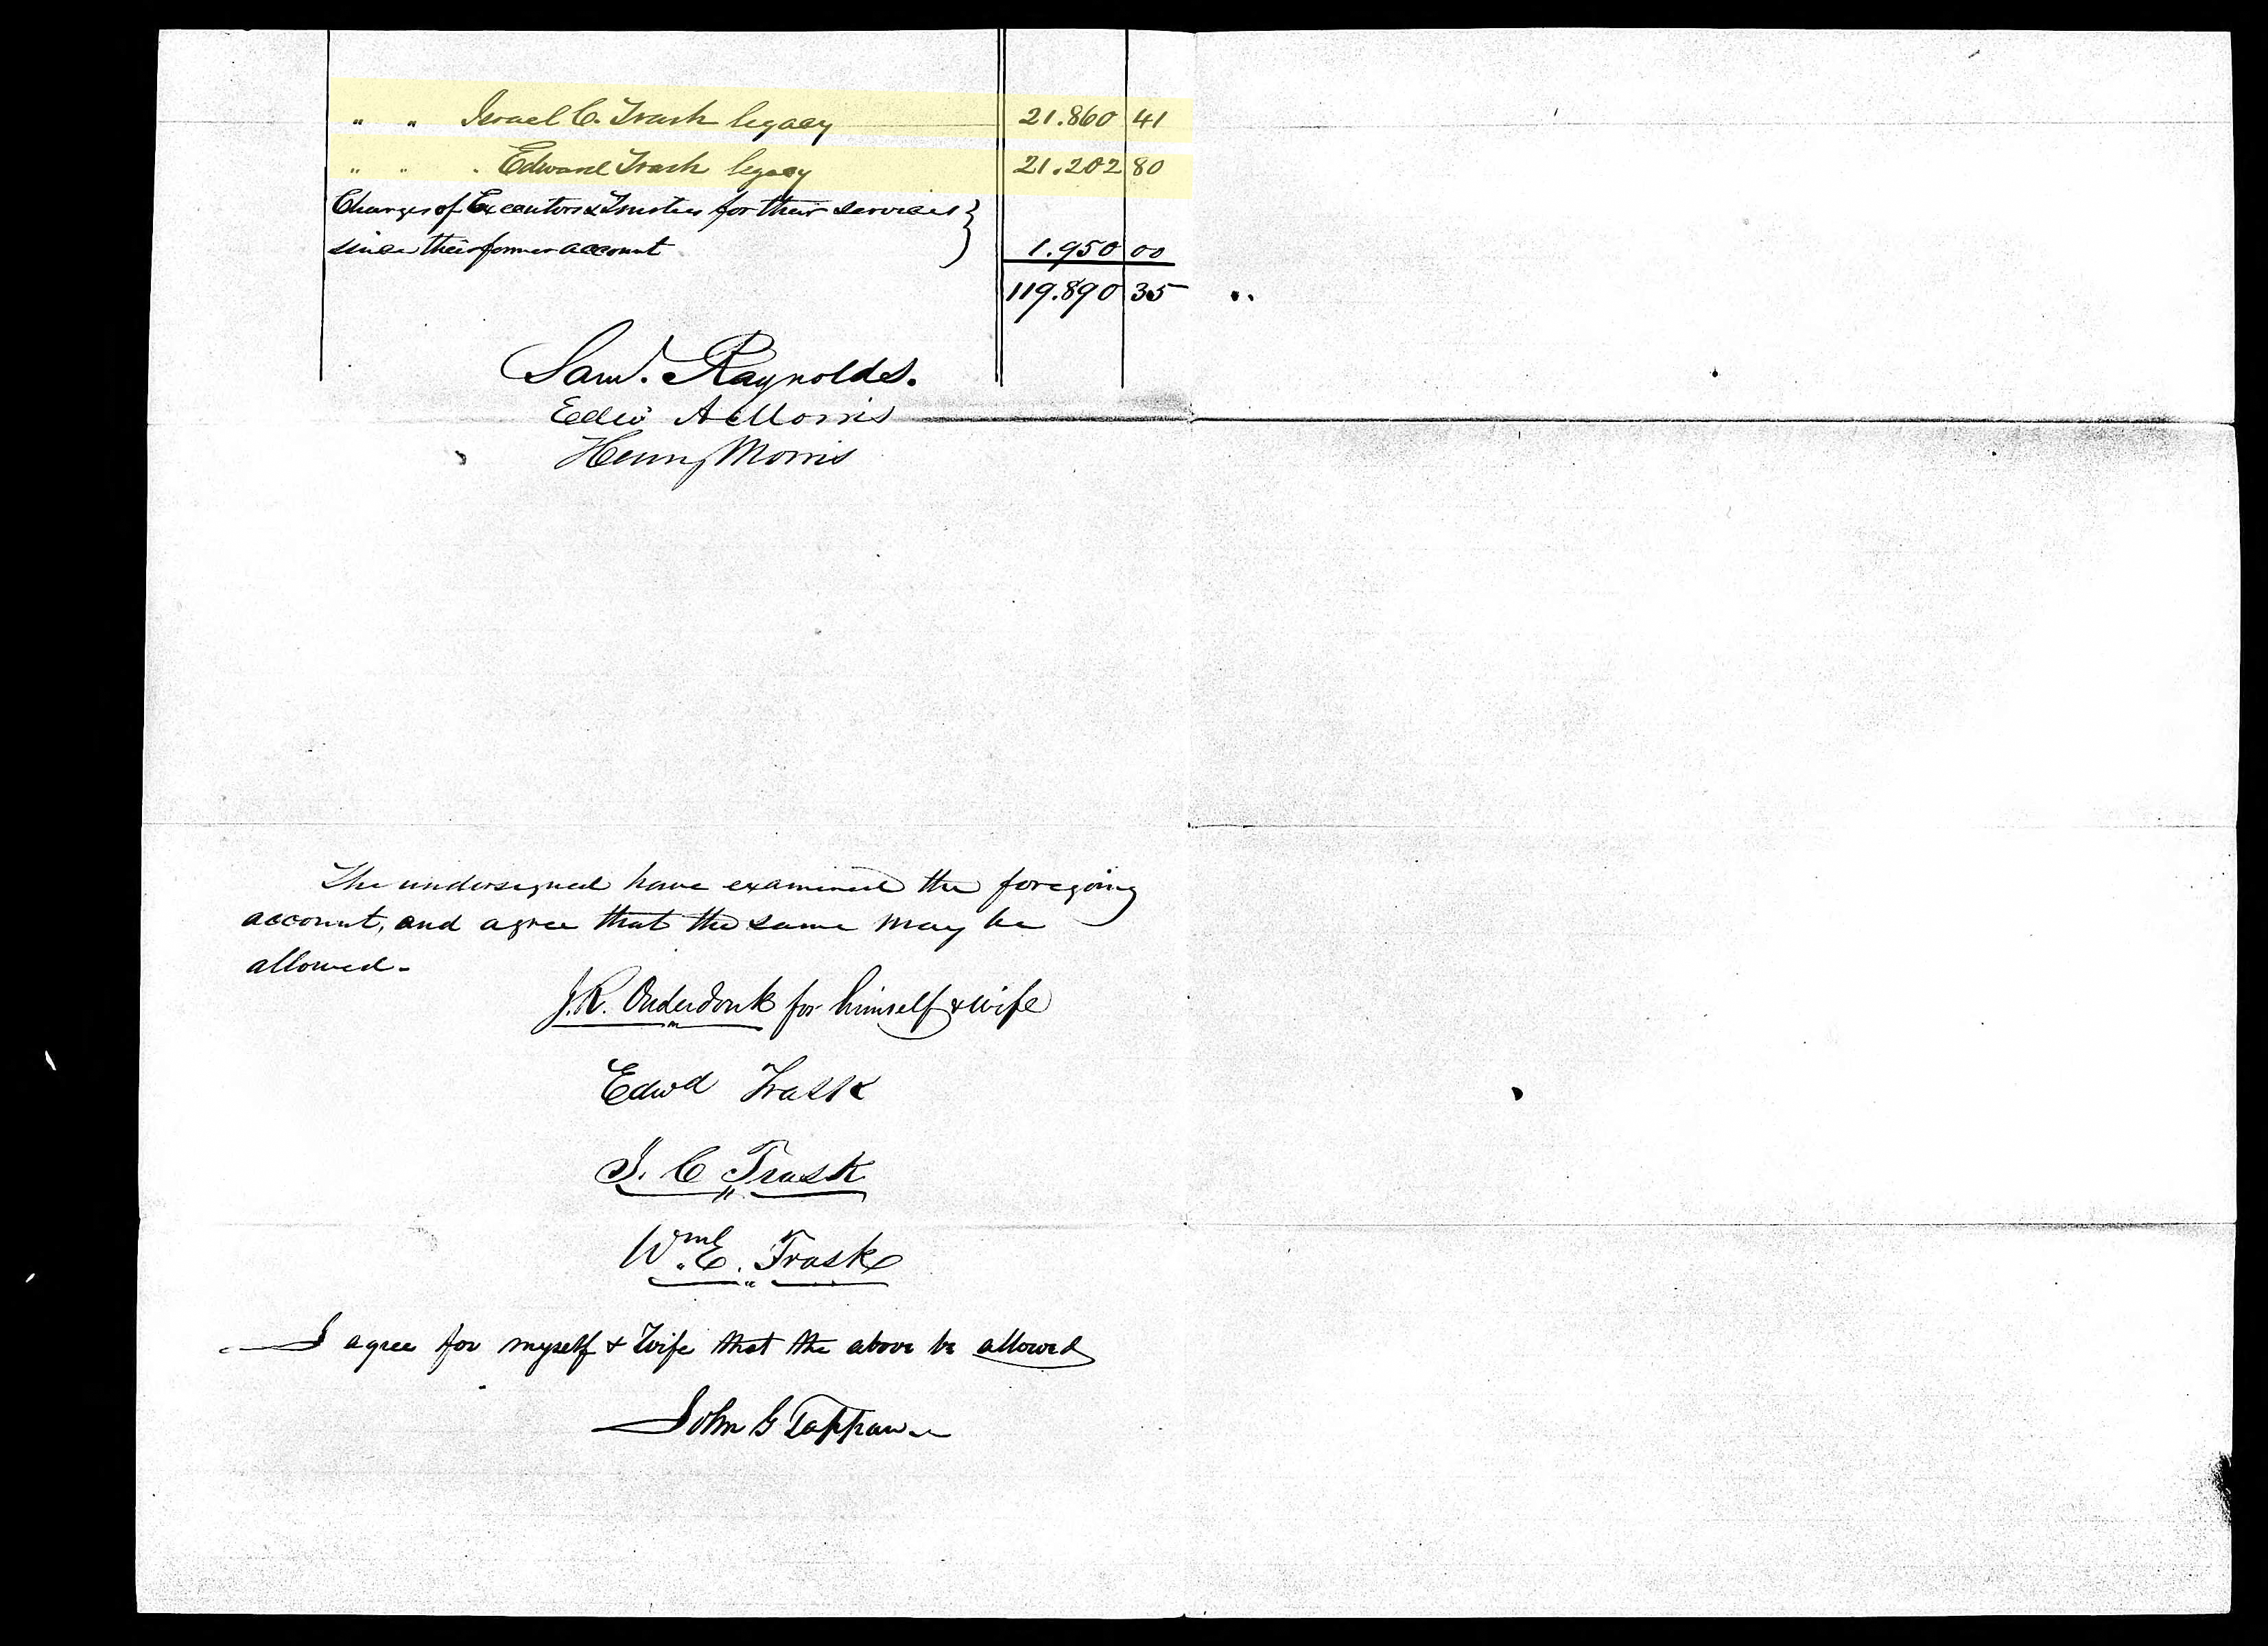 " " Israel C. Trask legacy 21.860 41
" " " Edward Trask legacy 21.202 80
Charges of Executors & Trustees for their services }
since their former account 1.950 00
119.890 35
Saml. Raynolds.
Edwd A Morris
Henry Morris
The undersigned have examined the foregoing
account, and agree that the same may be
allowed-
J.R. Onderdonk for himself & wife
Edwd Trask
I. C Trask
Wm. E. Trask
I agree for myself & Wife that the above be allowed
John G Tappan